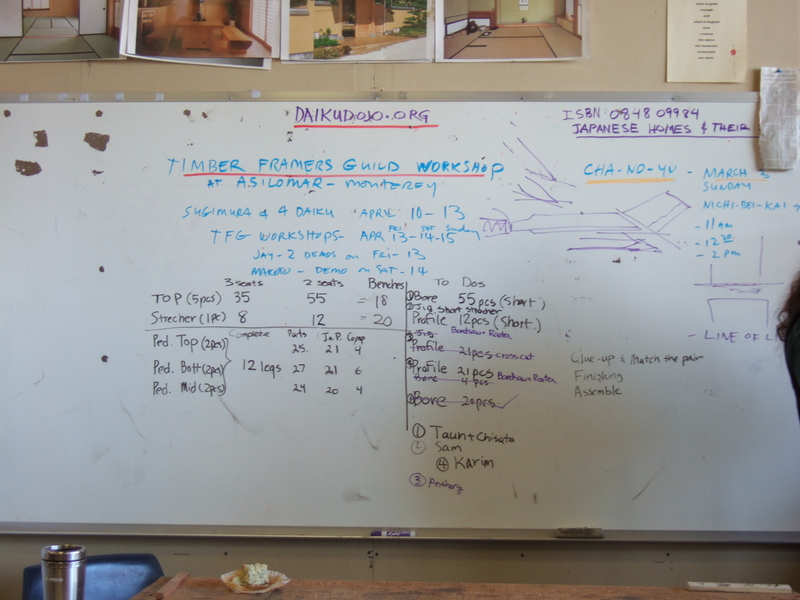 DAIKUDOJO.ORG
ISBN: 084809984
JAPANESE HOMES & THEIR
TIMBER FRAMERS GUILD WORKSHOP
AT ASILOMAR - MONTEREY
SUGIMURA & 4 DAIKU APRIL 10-13
FRI SAT Sunday
TFG WORKSHOPS - APR 13-14-15
JAY - 2 DEMOS ON FRI - 13
MAKOTO - DEMO ON SAT - 14
CHA-NO-YU - MARCH 3
SUNDAY
NICHI-BEI-KAI
- 11 am
- 12 30
- 2 pm
- LINE OF
3 seats 2 seats Benches
TOP (5pcs) 35 55 = 18
Strecher (1pc) 8 12 = 20
Complete Parts In.P. Comp
Ped. Top (2pcs) 25 21 4
Ped. Bott (2pcs) 12 legs 27 21 6
Ped. Mid (2pcs) 24 20 4
TO DOS
① Bore 55pcs (short)
② Jig Short strecher
Profile 12pcs (Short)
Bandsaw Router
Profile 21pcs cross cut
④ Profile 21pcs Bandsaw Router
Bore 4 pcs
Bore 20pcs ✓
① Taun + Chisato
② Sam
④ Karim
③ Anthony
Glue-up & Match the pair
Finishing
Assemble